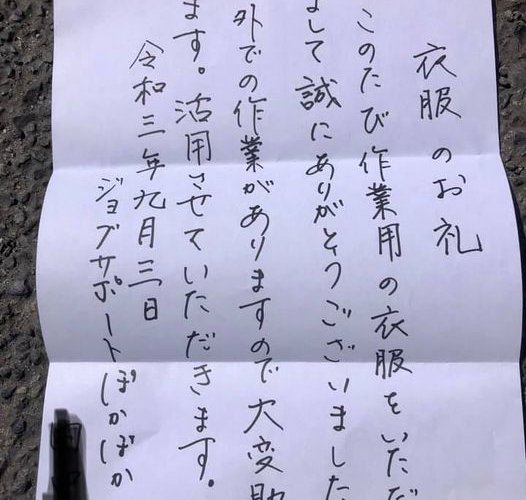 衣服のお礼
このたび作業用の衣服をいただ
まして誠にありがとうございました
外での作業がありますので大変助
ます。活用させていただきます。
令和三年九月三日
ジョブサポートぽかぽか